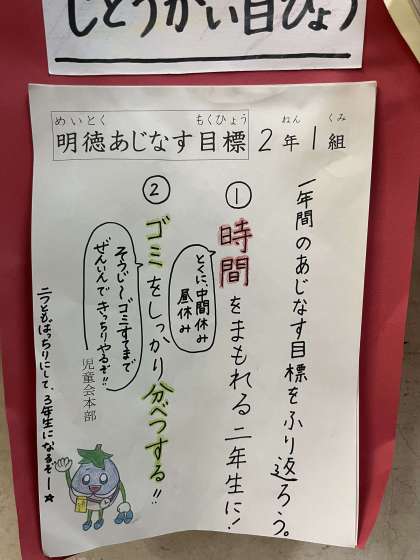 じどうかい目ひょう
めいとく もくひょう ねん くみ
明徳あじなす目標 2年1組
一年間のあじなす目標をふり返ろう。
① 時間をまもれる二年生に!
とくに、中間休み
昼休み
② ゴミをしっかり分べつする!!
そうじ〜ゴミすてまで
ぜんいんできっちりやるぞ!!
児童会本部
二つともばっちりにして、3年生になるぞー☆